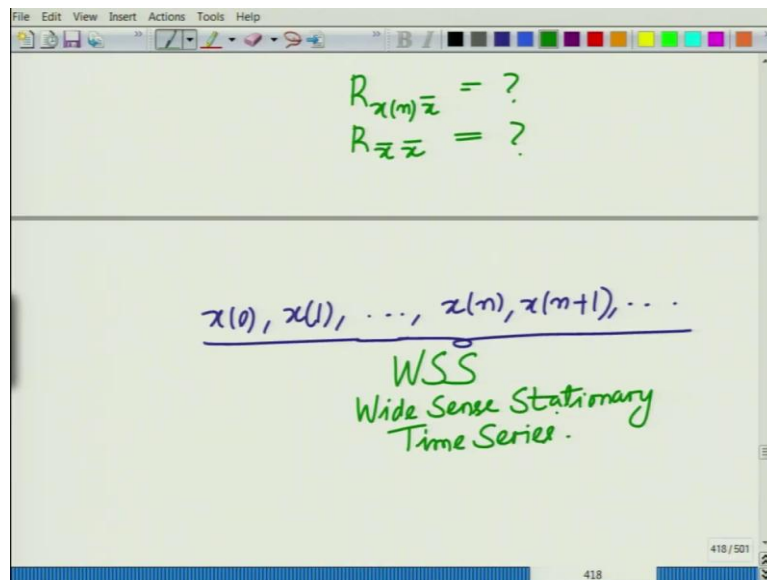 File Edit View Insert Actions Tools Help
B I
R_{x(n) x̄} = ?
R_{x̄ x̄} = ?
x(0), x(1), ..., x(n), x(n+1), ...
WSS
Wide Sense Stationary
Time Series.
418/501
418